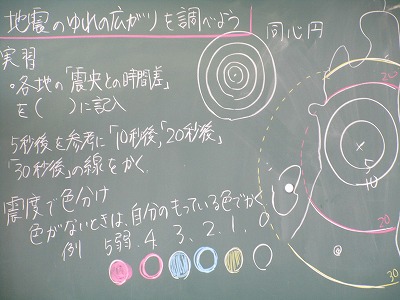 地震のゆれの広がりを調べよう
同心円
実習
・各地の「震央との時間差」
を(　　)に記入
5秒後を参考に「10秒後」「20秒後」
「30秒後」の線をかく
震度で色分け
色がないときは、自分のもっている色でかく
例 5弱. 4. 3. 2. 1. 0
20
5
10
20
30